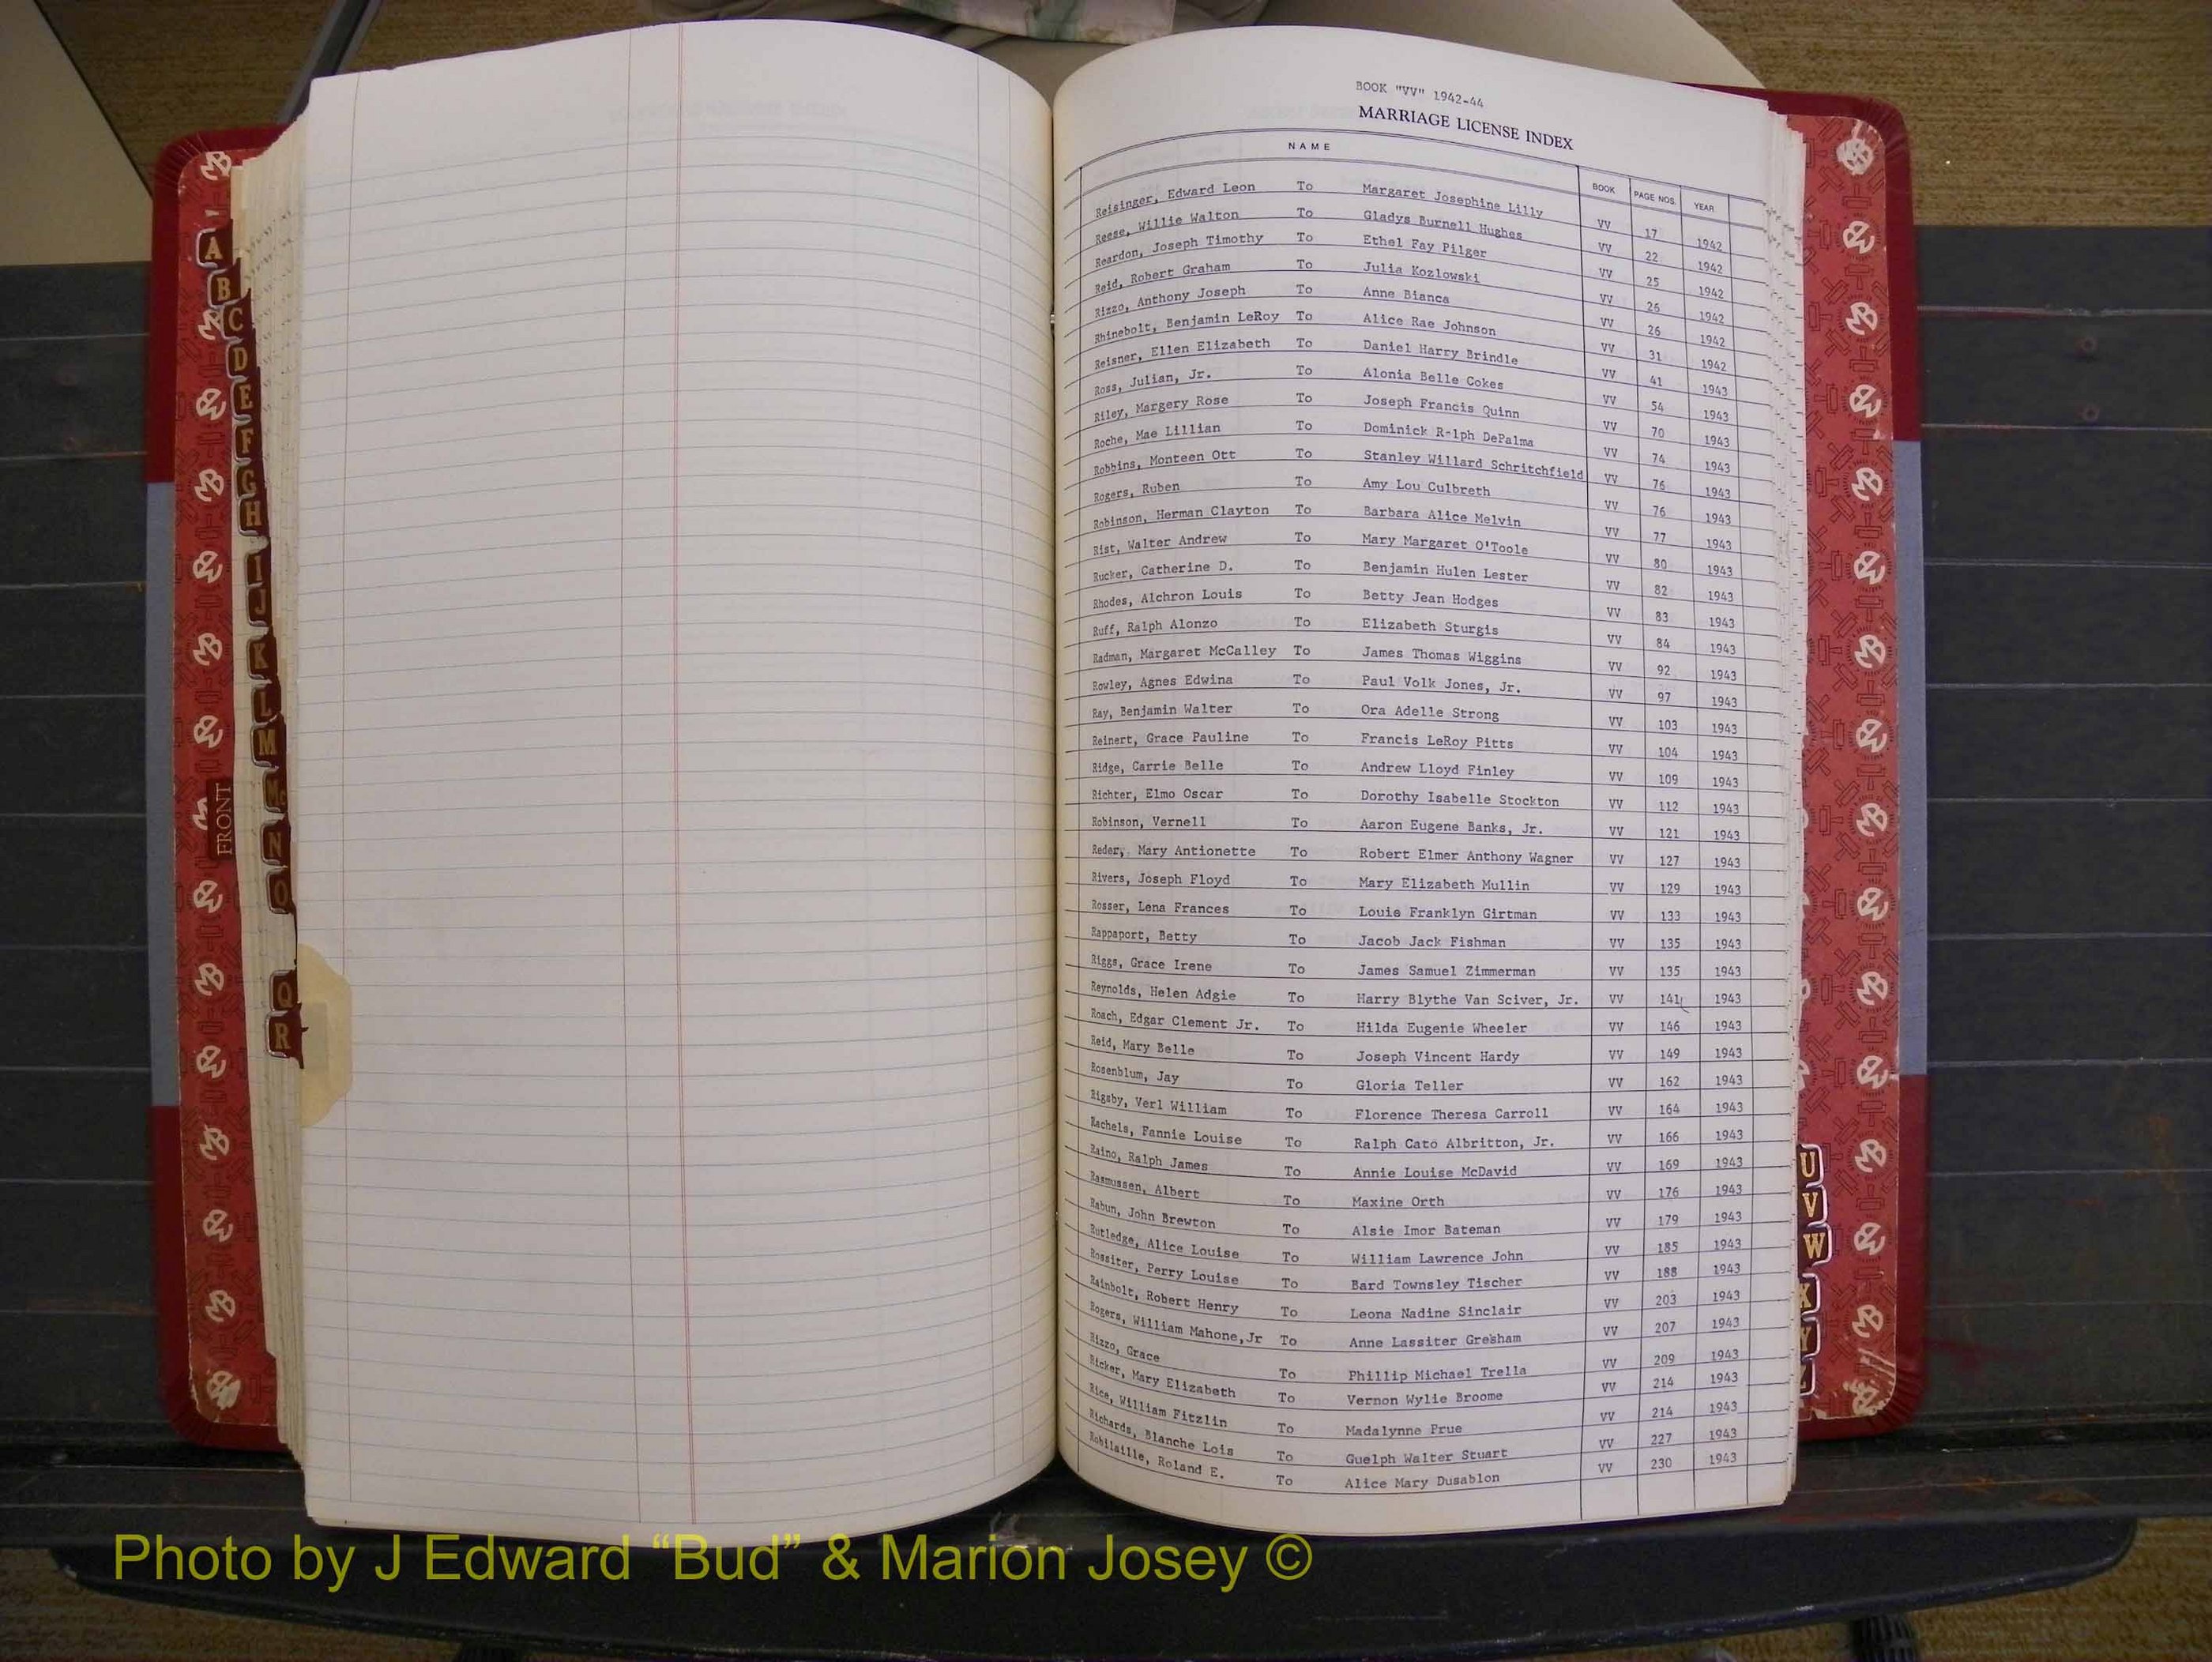 BOOK "VV" 1942-44
MARRIAGE LICENSE INDEX
NAME BOOK PAGE NOS. YEAR
Reisinger, Edward Leon To Margaret Josephine Lilly VV 17 1942
Reese, Willie Walton To Gladys Burnell Hughes VV 22 1942
Reardon, Joseph Timothy To Ethel Fay Pilger VV 25 1942
Reid, Robert Graham To Julia Kozlowski VV 26 1942
Rizzo, Anthony Joseph To Anne Bianca VV 26 1942
Rhinebolt, Benjamin LeRoy To Alice Rae Johnson VV 31 1942
Reisner, Ellen Elizabeth To Daniel Harry Brindle VV 41 1943
Ross, Julian, Jr. To Alonia Belle Cokes VV 54 1943
Riley, Margery Rose To Joseph Francis Quinn VV 70 1943
Roche, Mae Lillian To Dominick R-lph DePalma VV 74 1943
Robbins, Monteen Ott To Stanley Willard Schritchfield VV 76 1943
Rogers, Ruben To Amy Lou Culbreth VV 76 1943
Robinson, Herman Clayton To Barbara Alice Melvin VV 77 1943
Rist, Walter Andrew To Mary Margaret O'Toole VV 80 1943
Rucker, Catherine D. To Benjamin Hulen Lester VV 82 1943
Rhodes, Alchron Louis To Betty Jean Hodges VV 83 1943
Ruff, Ralph Alonzo To Elizabeth Sturgis VV 84 1943
Radman, Margaret McCalley To James Thomas Wiggins VV 92 1943
Rowley, Agnes Edwina To Paul Volk Jones, Jr. VV 97 1943
Ray, Benjamin Walter To Ora Adelle Strong VV 103 1943
Reinert, Grace Pauline To Francis LeRoy Pitts VV 104 1943
Ridge, Carrie Belle To Andrew Lloyd Finley VV 109 1943
Richter, Elmo Oscar To Dorothy Isabelle Stockton VV 112 1943
Robinson, Vernell To Aaron Eugene Banks, Jr. VV 121 1943
Reder, Mary Antionette To Robert Elmer Anthony Wagner VV 127 1943
Rivers, Joseph Floyd To Mary Elizabeth Mullin VV 129 1943
Rosser, Lena Frances To Louie Franklyn Girtman VV 133 1943
Rappaport, Betty To Jacob Jack Fishman VV 135 1943
Riggs, Grace Irene To James Samuel Zimmerman VV 135 1943
Reynolds, Helen Adgie To Harry Blythe Van Sciver, Jr. VV 141 1943
Roach, Edgar Clement Jr. To Hilda Eugenie Wheeler VV 146 1943
Reid, Mary Belle To Joseph Vincent Hardy VV 149 1943
Rosenblum, Jay To Gloria Teller VV 162 1943
Rigsby, Verl William To Florence Theresa Carroll VV 164 1943
Rachels, Fannie Louise To Ralph Cato Albritton, Jr. VV 166 1943
Raino, Ralph James To Annie Louise McDavid VV 169 1943
Rasmussen, Albert To Maxine Orth VV 176 1943
Rabun, John Brewton To Alsie Imor Bateman VV 179 1943
Rutledge, Alice Louise To William Lawrence John VV 185 1943
Rossiter, Perry Louise To Bard Townsley Tischer VV 188 1943
Rainbolt, Robert Henry To Leona Nadine Sinclair VV 203 1943
Rogers, William Mahone,Jr To Anne Lassiter Gresham VV 207 1943
Rizzo, Grace To Phillip Michael Trella VV 209 1943
Ricker, Mary Elizabeth To Vernon Wylie Broome VV 214 1943
Rice, William Fitzlin To Madalynne Prue VV 214 1943
Richards, Blanche Lois To Guelph Walter Stuart VV 227 1943
Robilaille, Roland E. To Alice Mary Dusablon VV 230 1943
A
B
C
D
E
F
G
H
I
J
K
L
M
Mc
N
O
Q
R
FRONT
U
V
W
X
Y
Photo by J Edward “Bud” & Marion Josey ©